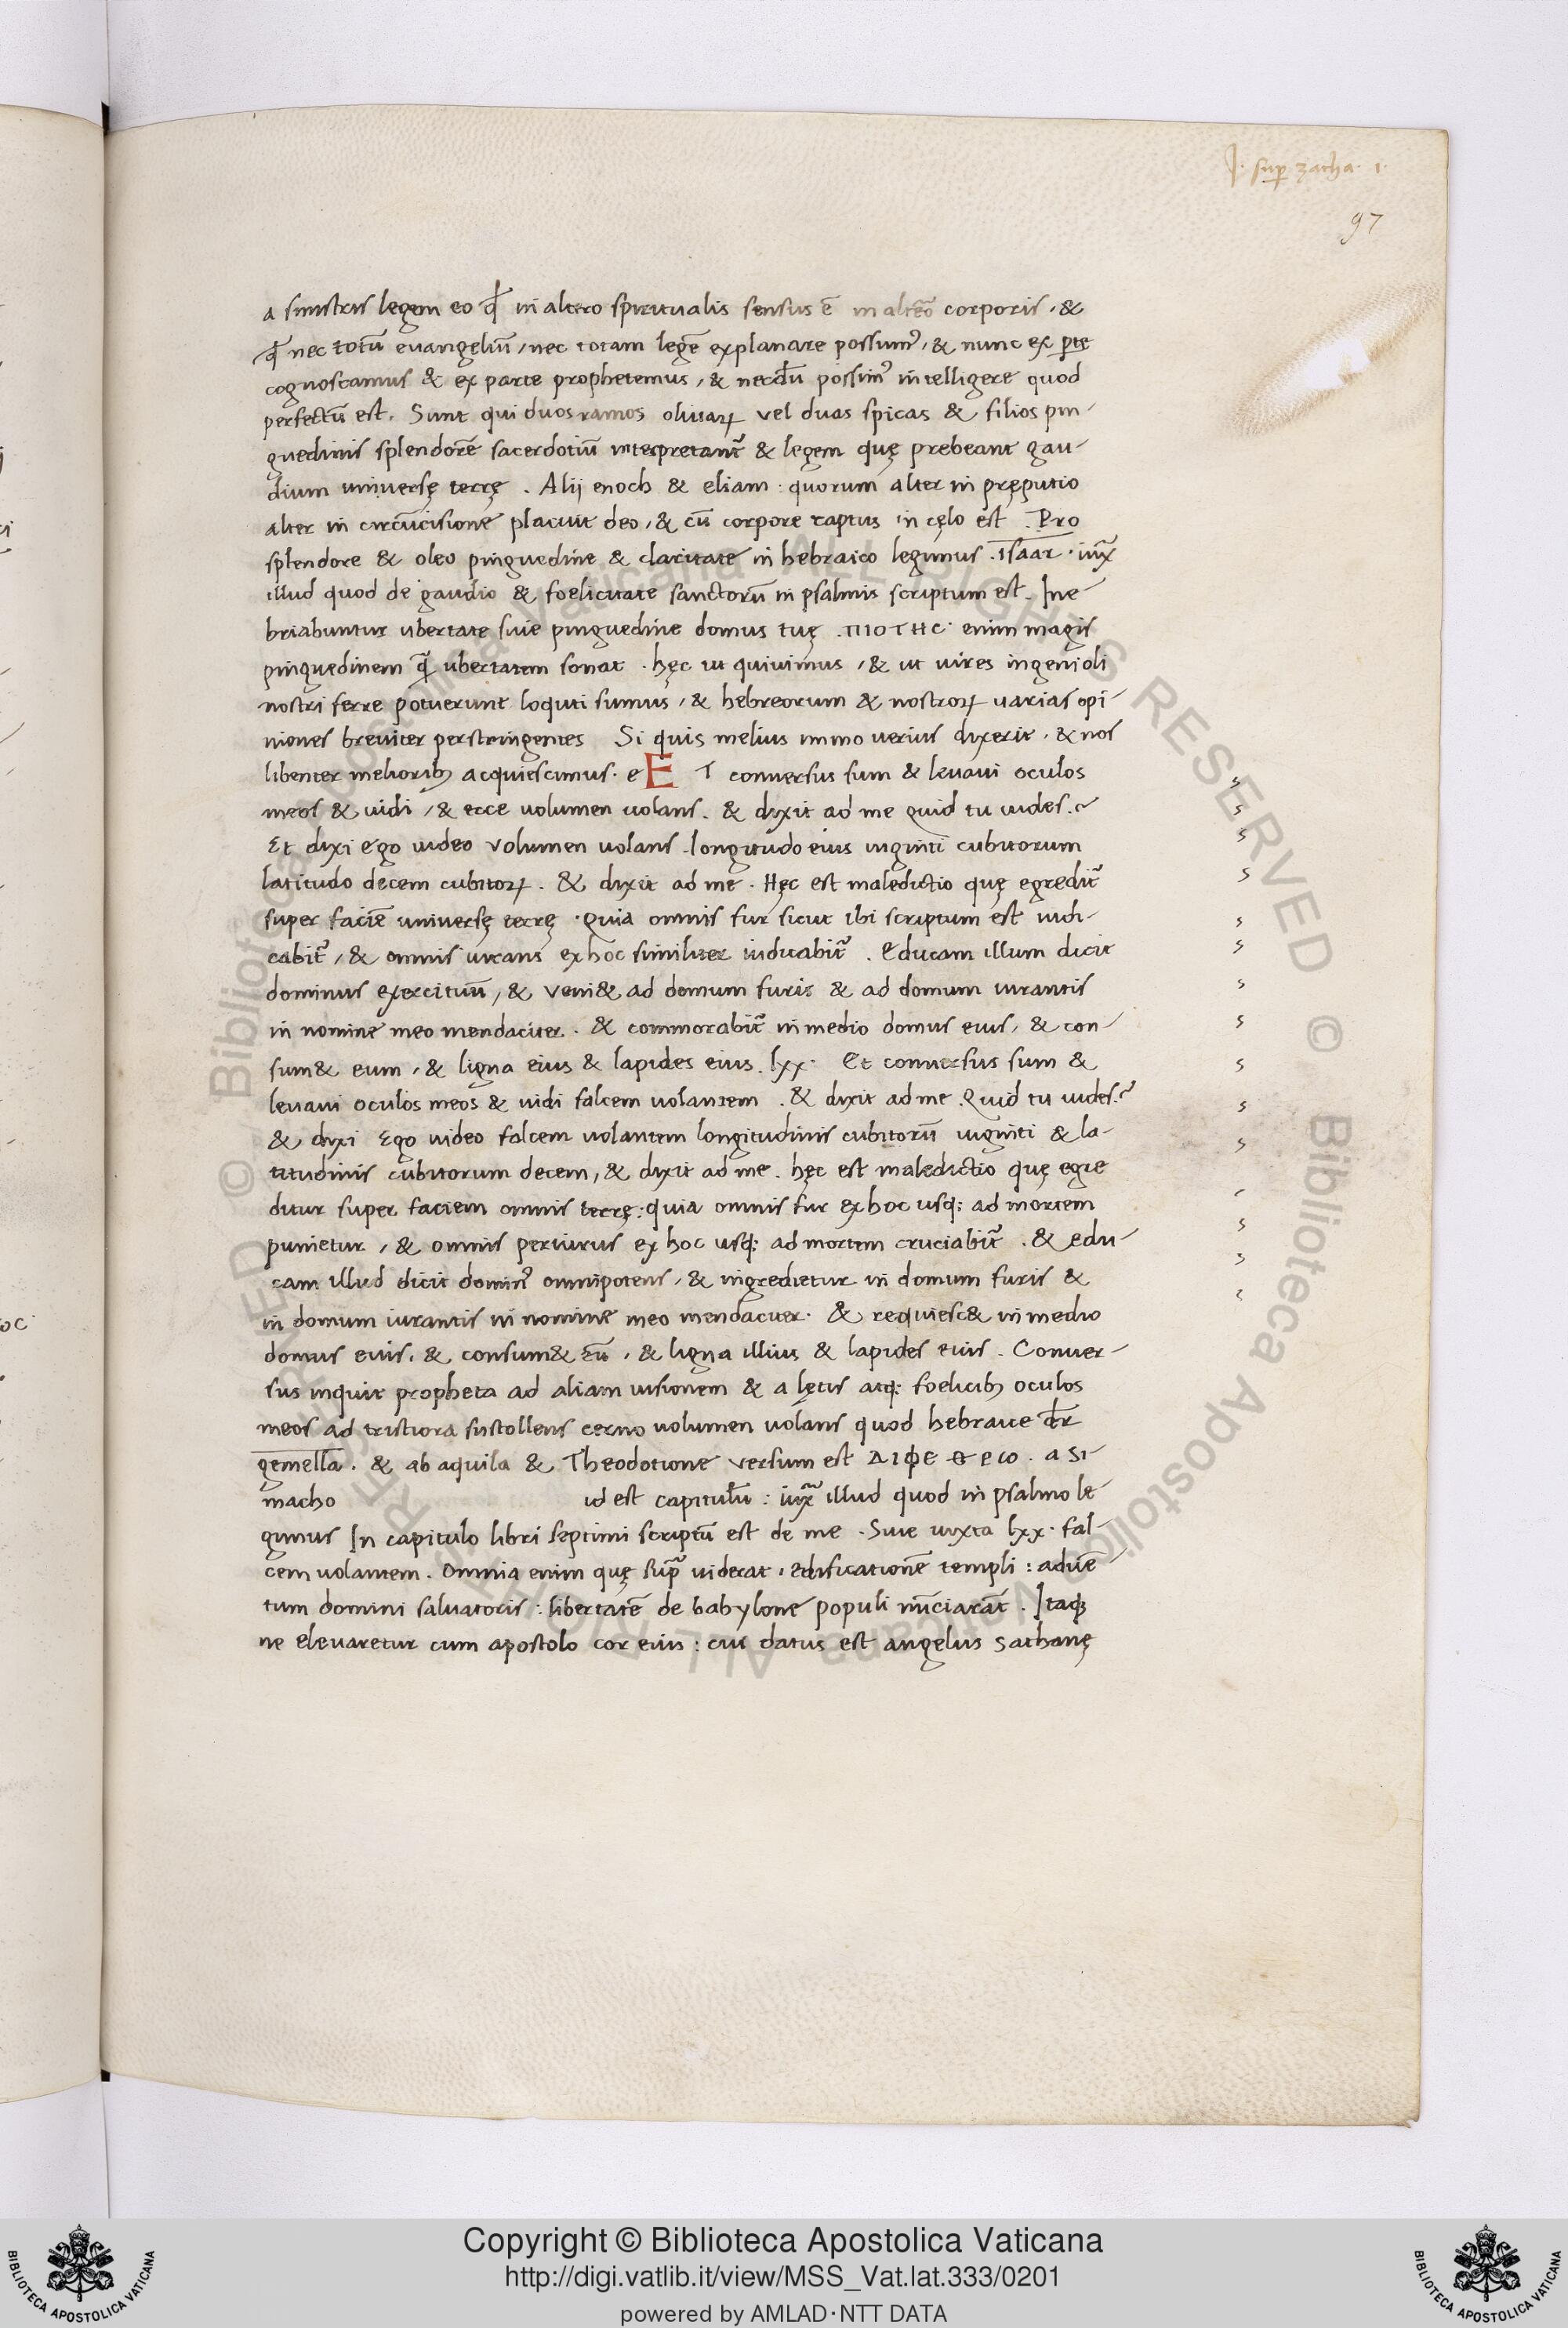 J. sup̲ zacha. 1.
97
a sinistris legem eo ꝙ in altero spiritualis sensus ē in altero corporis, &
ꝙ nec totū evangeliū, nec totam legē explanare possumꝰ, & nunc ex ꝑte
cognoscamus & ex parte prophetemus, & necdū possimꝰ intelligere quod
perfectū est. Sunt qui duos ramos olivaꝝ vel duas spicas & filios pin-
guedinis splendorē sacerdotiū interpretantᷣ & legem quę prebeant gau-
dium universę terrę . Alij enoch & eliam : quorum alter in pręputio
alter in circūcisione placuit deo, & cū corpore raptus in cęlo est . Pro
splendore & oleo pinguedine & claritate in hebraico legimus . isaar . iuxᷓ
illud quod de gaudio & foelicitate sanctorū in psalmis scriptum est. Ine-
briabuntur ubertate sive pinguedine domus tuę . ΠΙΟΤΗС . enim magis
pinguedinem ꝙ̄ ubertatem sonat . hęc ut quivimus, & ut vires ingenioli
nostri ferre potuerunt loquti sumus, & hebreorum & nostroꝝ varias opi-
niones breviter perstringentes Si quis melius immo verius dixerit, & nos
libenter melioribꝫ acquiescimus. e ET conversus sum & levavi oculos
meos & vidi, & ecce volumen volans. & dixit ad me quid tu vides.?
Et dixi ego video volumen volans. longitudo eius viginti cubitorum
latitudo decem cubitoꝝ. & dixit ad me. Hęc est maledictio quę egreditᷣ
super faciē universę terrę . Quia omnis fur sicut ibi scriptum est iudi-
cabitᷣ, & omnis iurans ex hoc similiter iudicabitᷣ . Educam illum dicit
dominus exercituū, & veni& ad domum furis & ad domum iurantis
in nomine meo mendaciter. & commorabitᷣ in medio domus eius, & con-
sum& eum, & ligna eius & lapides eius. lxx. Et conversus sum &
levavi oculos meos & vidi falcem volantem . & dixit ad me. Quid tu vides.?
& dixi Ego video falcem volantem longitudinis cubitorū viginti & la-
titudinis cubitorum decem, & dixit ad me. hęc est maledictio quę egre
ditur super faciem omnis terrę: quia omnis fur ex hoc usq: ad mortem
punietur, & omnis periurus ex hoc usq: ad mortem cruciabitᷣ . & edu-
cam illud dicit dominꝰ omnipotens, & ingredietur in domum furis &
in domum iurantis in nomine meo mendaciter. & requiesc& in medio
domus eius, & consum& eū, & ligna illius & lapides eius. Conver-
sus inquit propheta ad aliam visionem & a lętis atq: foelicibꝫ oculos
meos ad tristiora sustollens cerno volumen volans quod hebraice dr̄
gemella. & ab aquila & Theodotione versum est ΔΙΦΕΘΕΡΩ . a Si-
macho id est capitulū : iuxᷓ illud quod in psalmo le
gimus In capitulo libri septimi scriptū est de me . Sive iuxta lxx. fal-
cem volantem. Omnia enim quę supᷓ viderat, edificationē templi : advē-
tum domini salvatoris : libertatē de babylone populi nūciarāt . Itaqꝫ
ne elevaretur cum apostolo cor eius : cui datus est angelus sathanę
Copyright © Biblioteca Apostolica Vaticana
http://digi.vatlib.it/view/MSS_Vat.lat.333/0201
powered by AMLAD·NTT DATA